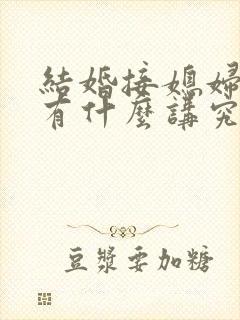 結婚接媳婦
有什麼講究
豆漿要加糖